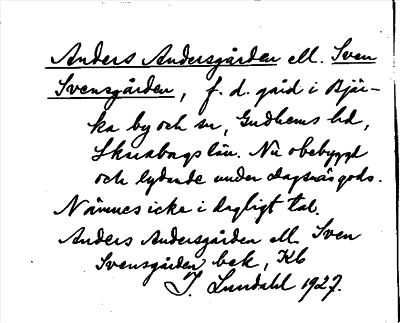 Anders Andersgården ell. Sven
Svensgården, f. d. gård i Bjür-
ka by och sn, Gudhems hd,
Skarabogs län. Nu obebyggd
och lydande under Dagsnäs gods.
Nämnes icke i dagligt tal.
Anders Andersgården ell. Sven
Svensgården bek, Kb
J. Lundahl 1927.